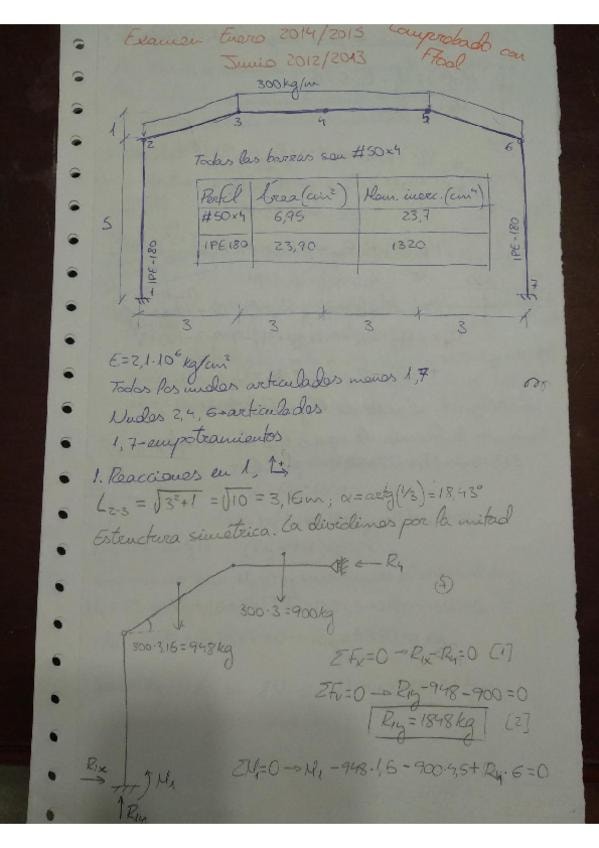 Examen Enero 2014/2015 Comprobado con
Junio 2012/2013 Ftool
300kg/m
1
2
3
4
5
6
Todas las barras son #50x4
Perfil Área(cm²) Mom. inerc.(cm⁴)
#50x4 6,95 23,7
IPE180 23,90 1320
5
IPE-180
IPE-180
1
7
3 3 3 3
E=2,1·10⁶ kg/cm²
Todos los nudos articulados menos 1,7
Nudos 2,4,6→articulados
1,7→empotramientos
1. Reacciones en 1,
L2-3 = √3²+1 = √10 = 3,16m; α=artg(1/3)=18,43º
Estructura simétrica. La dividimos por la mitad
R4
300·3=900kg
300·3,16=948kg
ΣFx=0→R1x-R4=0 [1]
ΣFv=0→R1y-948-900=0
R1y=1848kg [2]
R1x
M1
ΣM1=0→M1-948·1,5-900·4,5+R4·6=0
R1y